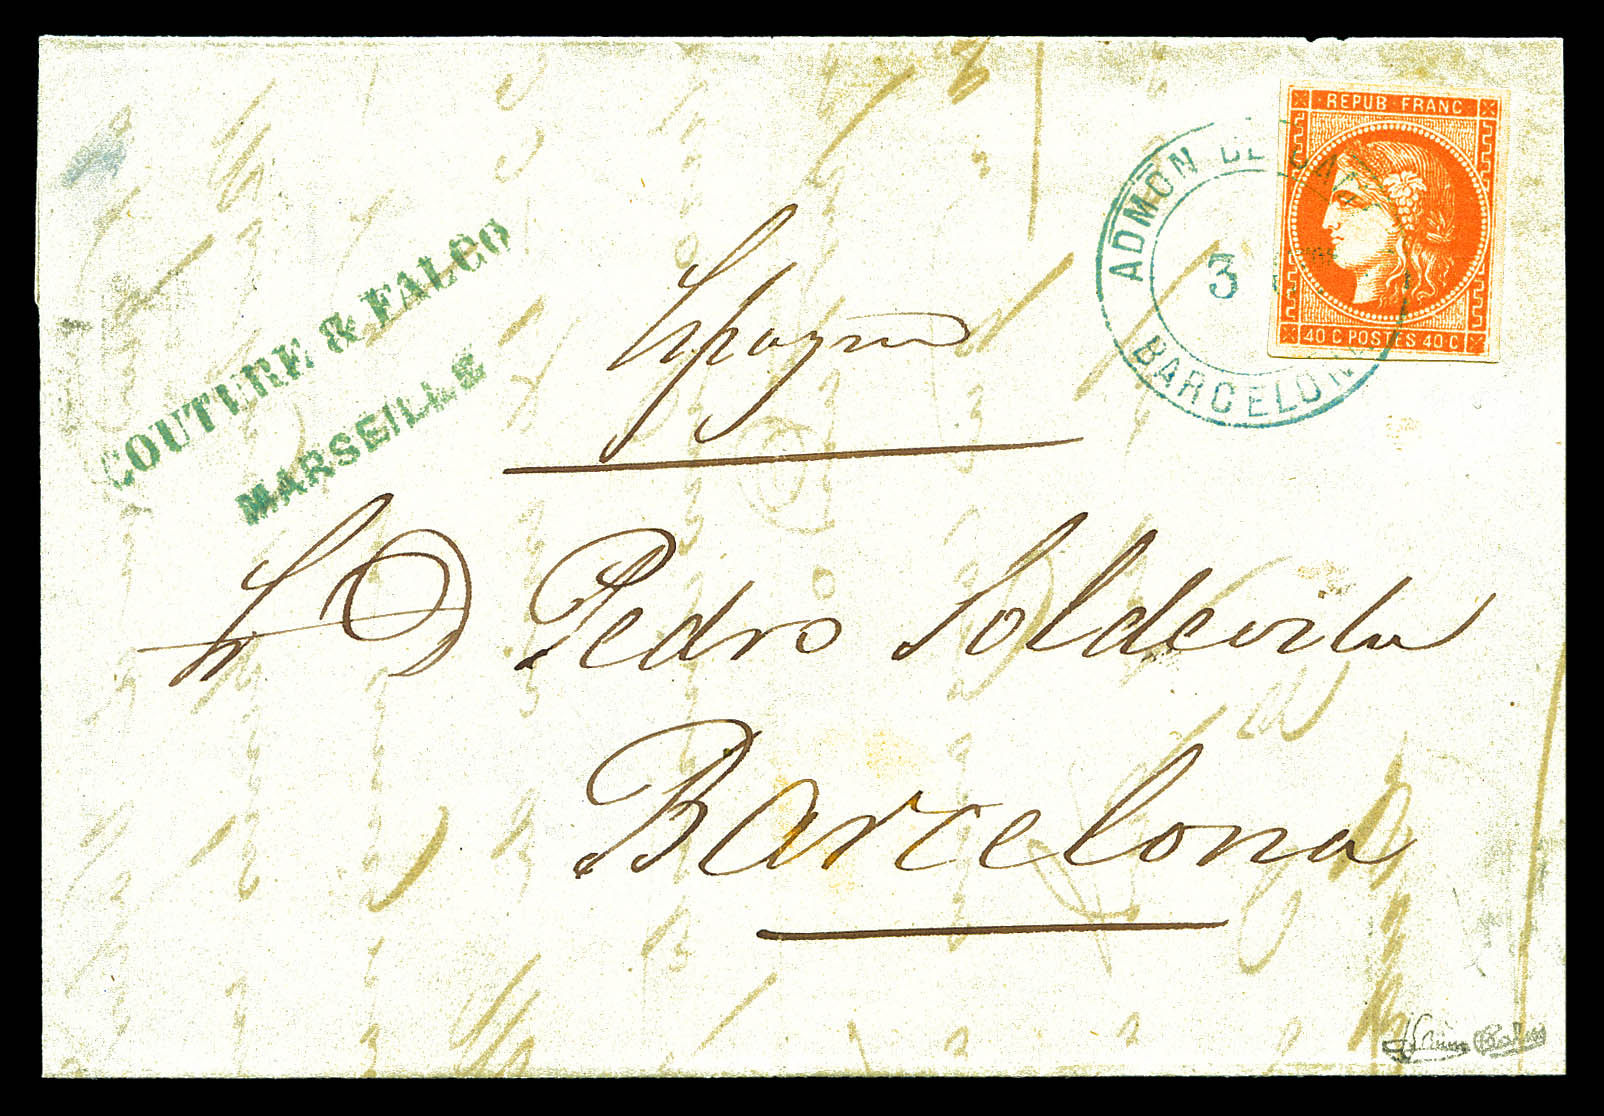 REPUB FRANC
40 C POSTES 40 C
ADMON DE
3
BARCELON
COUTURE & FALCO
MARSEILLE
Espagne
Sr D Pedro Soldevila
Barcelona